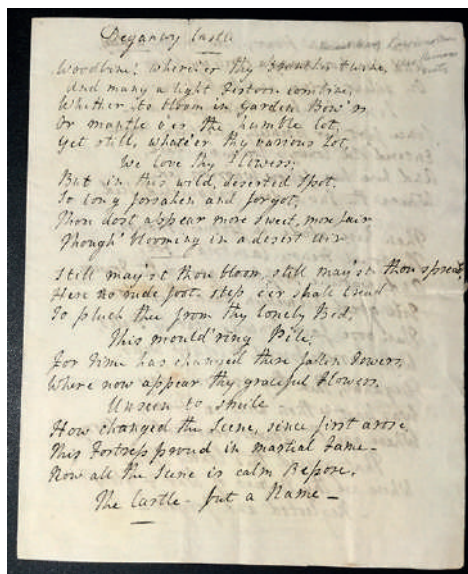 Deganwy Castle
Woodbine! where'er thy branches twine,
And many a light festoon combine,
Whether to bloom in Garden Bow'rs
Or mantle o'er the humble Cot,
Yet still, whate'er thy various Lot,
We love thy Flowers;
But in this wild, deserted spot,
So long forsaken and forgot,
Thou dost appear more sweet, more fair
Though blooming in a desert air
Still may'st thou bloom, still may'st thou spread,
Here no rude foot-step e'er shall tread
To pluck thee from thy lonely Bed,
This mould'ring Pile,
For Time has changed these fallen Towers,
Where now appear thy grateful Flowers,
Unseen to smile
How changed the Scene, since first arose
This Fortress proud in martial Fame-
Now all the Scene is calm Repose,
The Castle - but a Name -